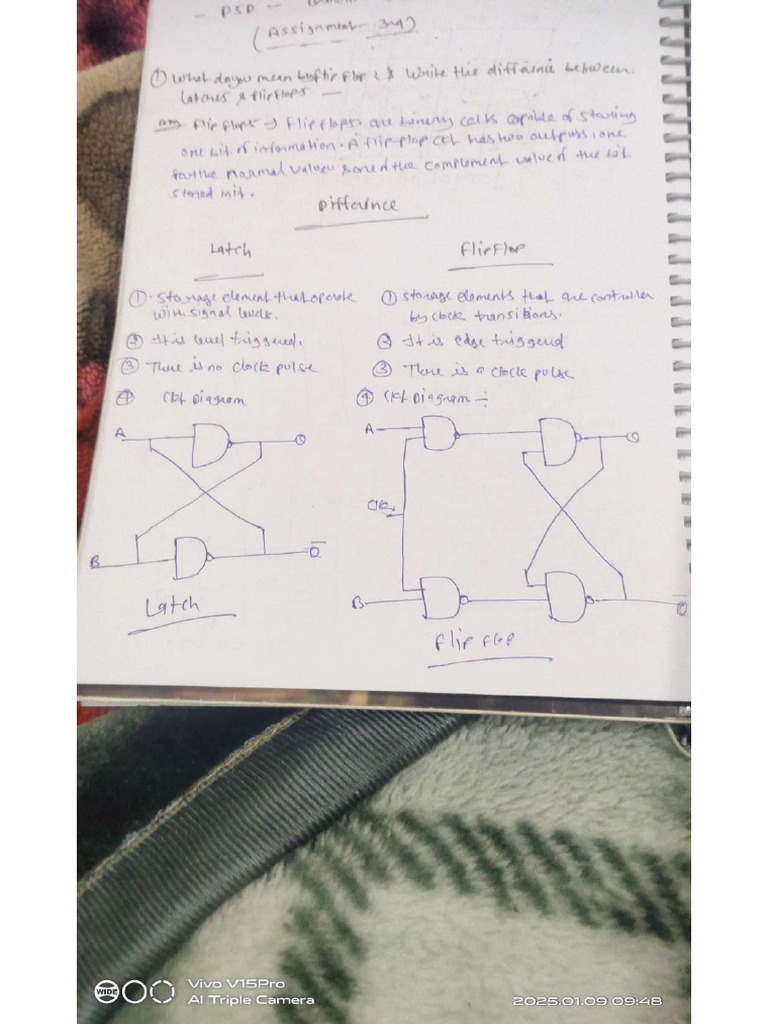 - PSD -
(Assignment 3rd)
① What do you mean by flip flop? & Write the difference between
latches & flipflops —
Ans Flip flops → Flipflops are binary cells capable of storing
one bit of information. A flip-flop ckt has two outputs, one
for the normal value & one of the complement value of the bit
stored in it.
Difference
Latch
FlipFlop
①. Storage element that operate
with signal levels.
① Storage elements that are controller
by clock transitions.
② It is level triggered.
② It is edge triggered
③ There is no clock pulse
③ There is a clock pulse
④ Ckt Diagram
④ Ckt Diagram ÷
A
Q
A
Q
Clk
B
Q̅
B
Q̅
Latch
Flip Flop
WIDE
Vivo V15Pro
AI Triple Camera
2025.01.09 09:48